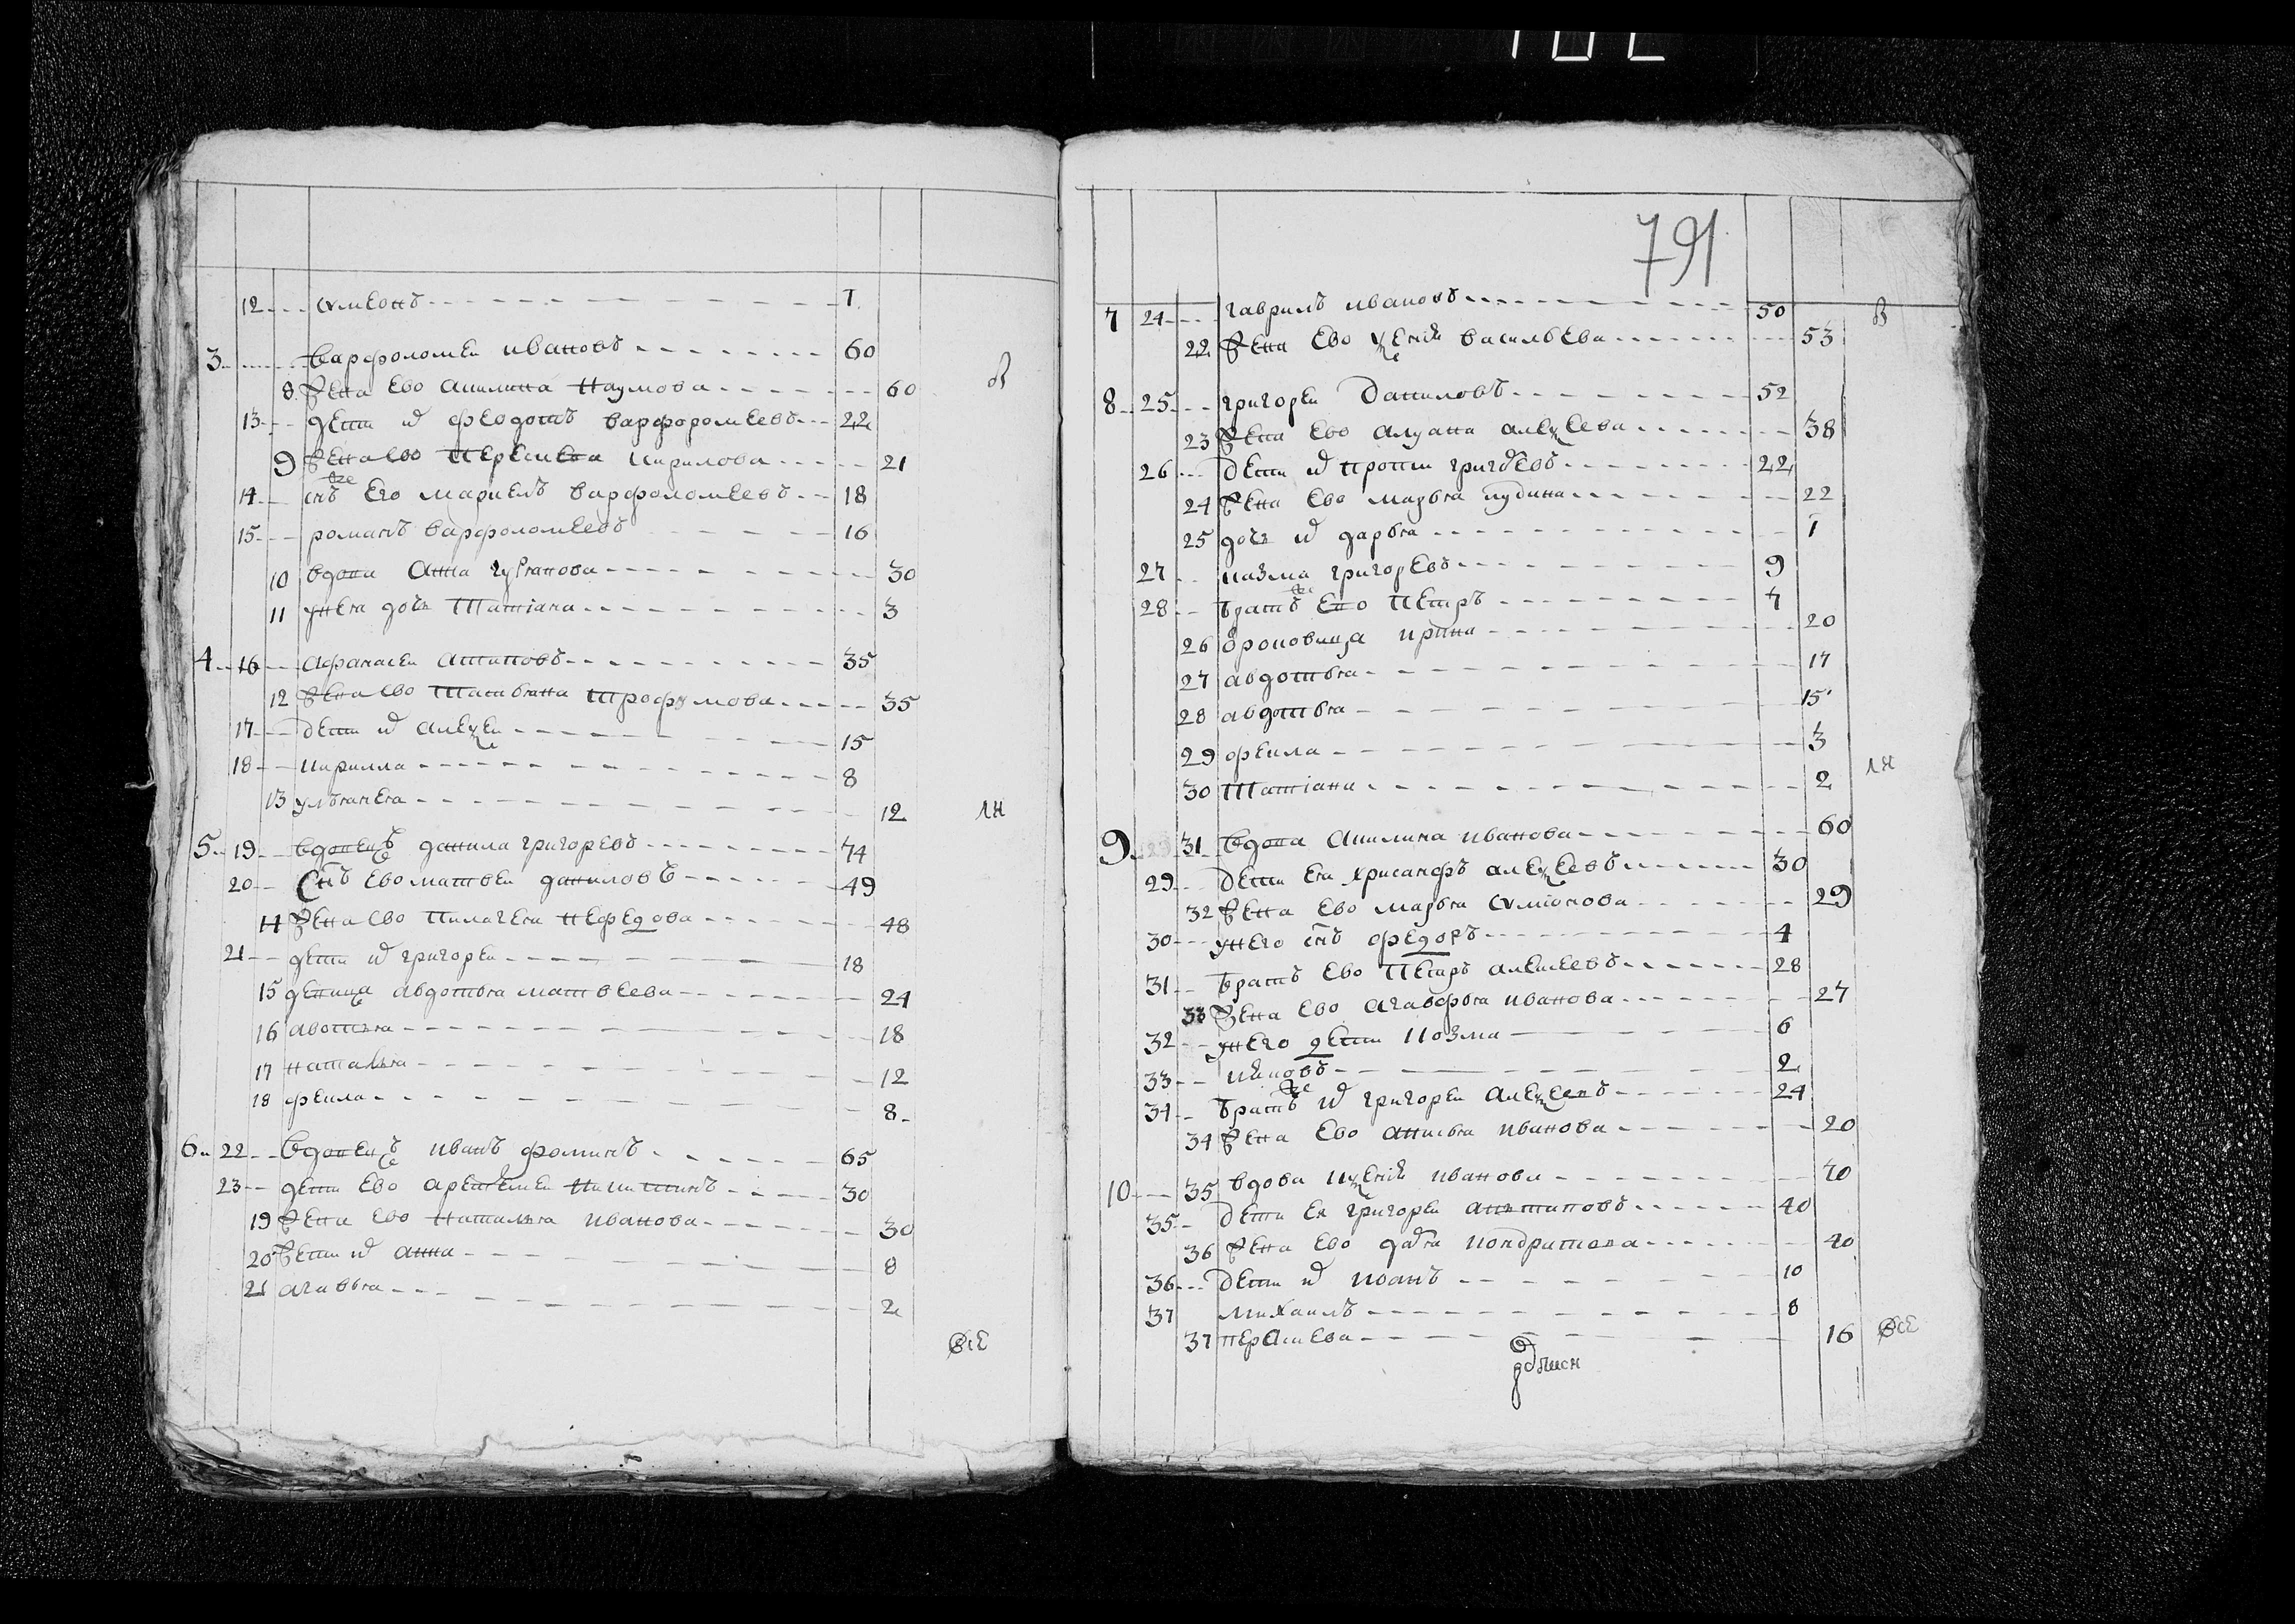 12 сѵмеонъ 1
3 варфоломеи ивановъ 60 в
8 жена ево акилина наумова 60
13 дети их феодотъ варфоромеевъ 22
9 жена ево пераскева кирилова 21
14 снъ его же маркелъ варфоломеевъ 18
15 романъ варфоломеевъ 16
10 вдова анна 30
11 у нея дочь татiана 3
4 16 афанасеи антиповъ 35
12 жена ево татьяна трофимова 35
17 дети их алексеи 15
18 кирилла 8
13 ульянея 12 ли
5 19 вдовецъ данила григоревъ 74
20 снъ ево матвеи даниловъ 49
14 жена ево пилагея нефедова 48
21 дети их григореи 18
15 девица авдотья матвеева 24
16 авотья 18
17 наталья 12
18 фекла 8
6 22 вдовецъ иванъ фоминъ 65
23 дети ево
19 жена ево наталья иванова 30
20 дети их анна 8
21 агавья 2
все
791
7 24 гаврилъ ивановъ 50 в
22 жена ево ксения васильева 53
8 25 григореи даниловъ 52
23 жена ево алексеева 38
26 дети их григоревъ 22
24 жена ево марья 22
25 дочь их дарья 1
27 казма григоревъ 9
28 братъ же ево петръ 7
26 ирина 20
27 авдотья 17
28 авдотья 15
29 фекла 3
30 татiана 2 ли
9 31 вдова акилина иванова 60
29 дети ея хрисанфъ алексеевъ 30
32 жена ево марья сѵмiонова 29
30 у него снъ федоръ 4
31 братъ ево петръ алексеевъ 28
33 жена ево агавфья иванова 27
32 у него дети козма 6
33 яковъ 2
34 братъ же их григореи алексеевъ 24
34 жена ево анисья иванова 20
10 35 вдова ксения иванова 70
35 дети ея григореи анътиповъ 40
36 жена ево дарья кондратова 40
36 дети их иванъ 10
37 михаилъ 8
37 пераскева 16 все